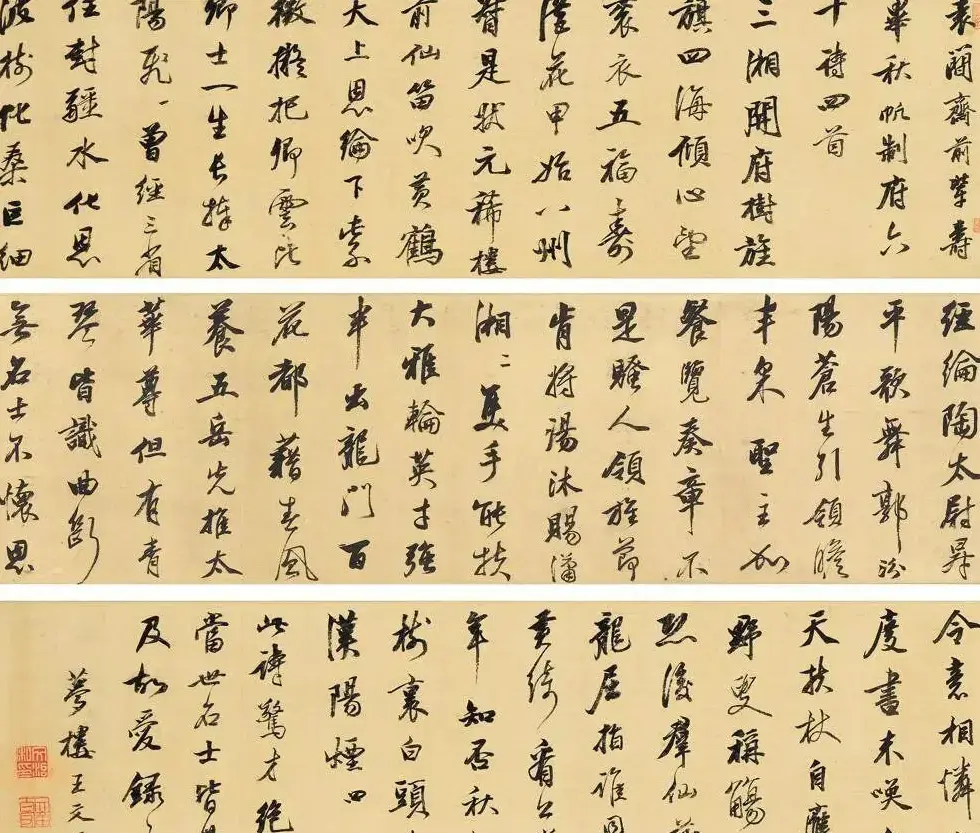 袁簡齋前輩壽
畢秋帆制府六
十詩四首
三湘開府樹旌
旗四海傾心望
袞衣五福壽
從花甲始八州
督是狀元稀樓
前仙笛吹黃鶴
天上恩綸下紫
薇擬把卿雲比
卿士一生長捧太
陽飛一曾經三省
任封疆水化恩
波樹化桑巨細
經綸陶太尉昇
平歌舞郭汾
陽蒼生引領瞻
丰采聖主加
餐覽奏章不
是騷人領旌節
肯將湯沐賜瀟
湘二美手能扶
大雅輪英才強
半出龍門百
花都藉春風
養五岳先推太
華尊但有青
琴皆識曲斷
無名士不懷恩
令意相憐
度書來喚
天扶杖自應
野叟稱觴
然後羣仙
龍屈指誰
黃綺看公
年知否秋
樹裏白頭
漢陽煙四
此詩驚才絕
當世名士皆
及故愛錄
夢樓王文